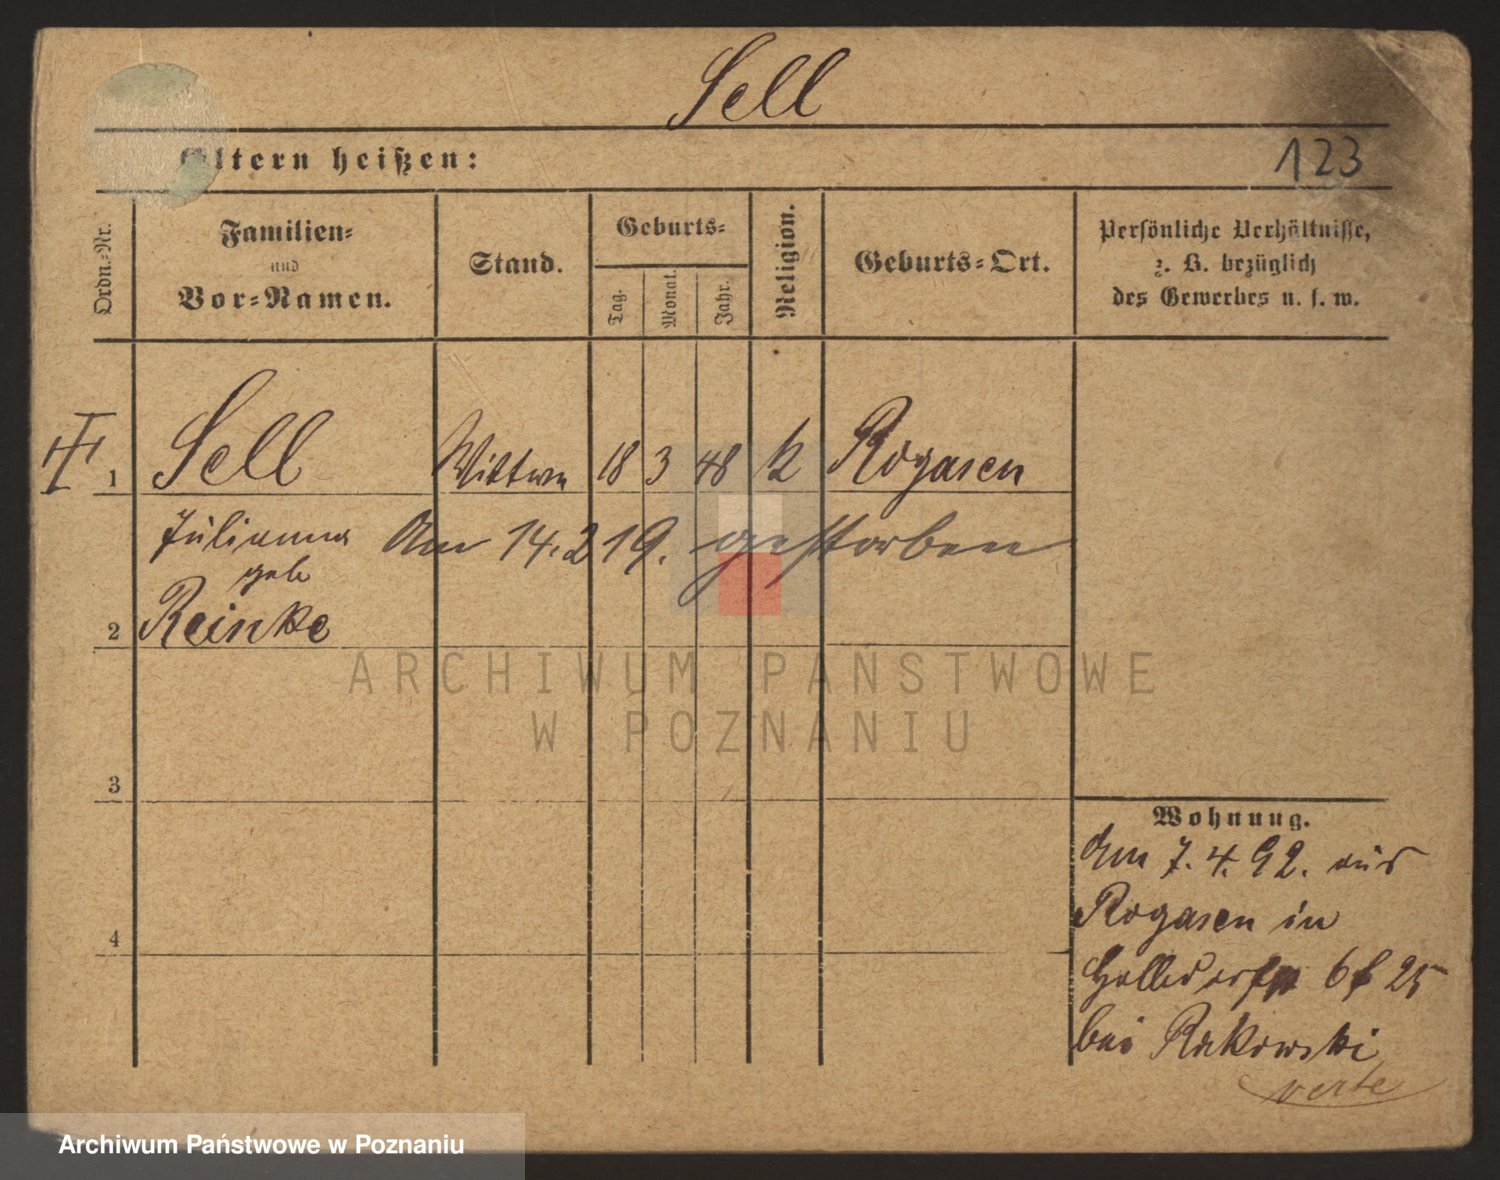 Sell
Eltern heißen:
123
Ordn.-Nr.
Familien-
und
Vor-Namen.
Stand.
Geburts-
Tag.
Monat.
Jahr.
Religion.
Geburts-Ort.
Persönliche Verhältnisse,
z. B. bezüglich
des Gewerbes u. s. w.
1 Sell Wittwe 18 3 48 k Rogasen
Julianna Am 14. 2 19. gestorben
geb
2 Reinke
3
4
Wohnung.
Am 7. 4. 92. aus
Rogasen in
25
bei Rakowski
verte
ARCHIWUM PAŃSTWOWE
W POZNANIU
Archiwum Państwowe w Poznaniu